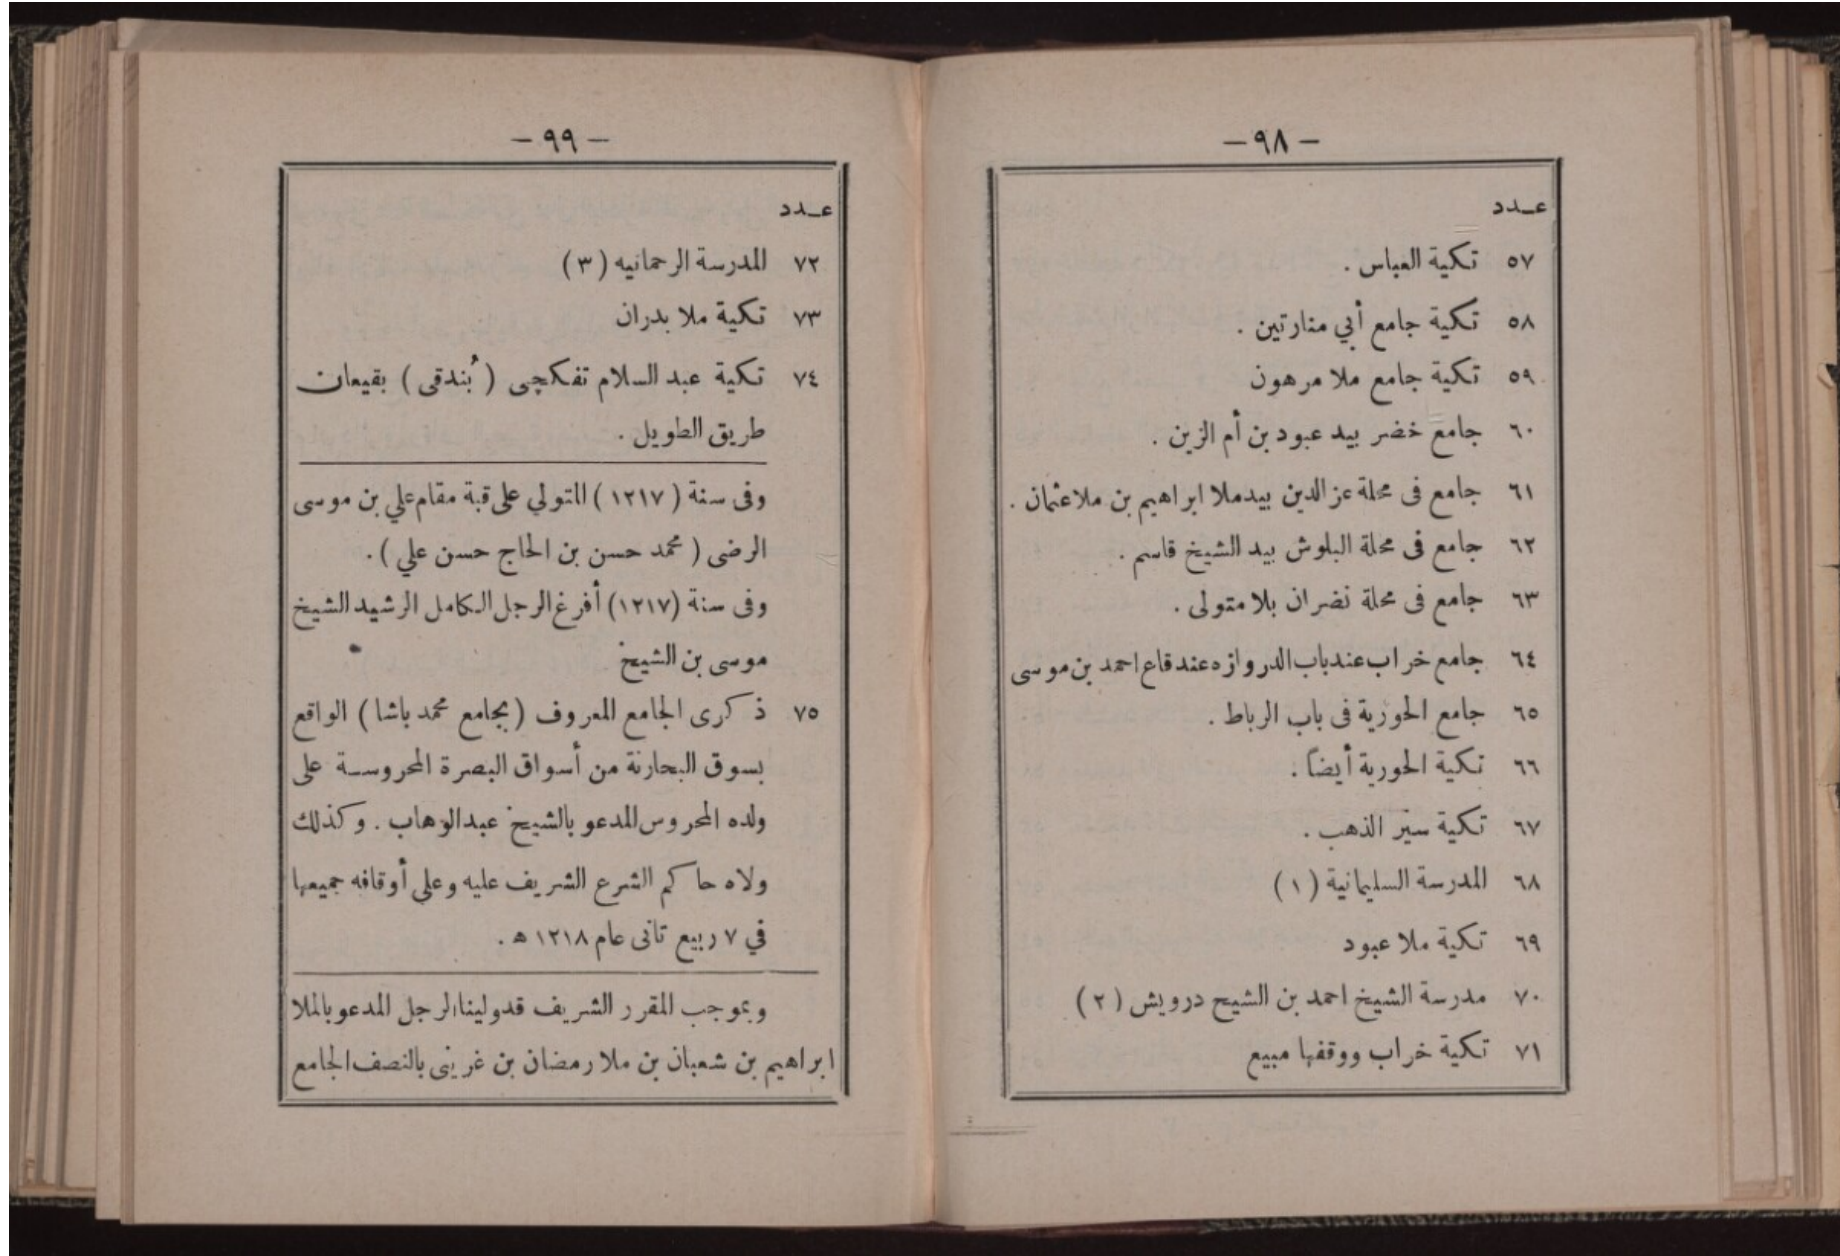 — ٩٨ —
عـدد
٥٧ تكية العباس .
٥٨ تكية جامع أبي منارتين .
٥٩ تكية جامع ملا مرهون
٦٠ جامع خضر بيد عبود بن أم الزين .
٦١ جامع فى محلة عز الدين بيد ملا ابراهيم بن ملا عثمان .
٦٢ جامع فى محلة البلوش بيد الشيخ قاسم .
٦٣ جامع فى محلة نضران بلا متولى .
٦٤ جامع خراب عند باب الدروازه عند قاع احمد بن موسى
٦٥ جامع الحورية فى باب الرباط .
٦٦ تكية الحورية أيضاً .
٦٧ تكية سيّر الذهب .
٦٨ المدرسة السليمانية ( ١ )
٦٩ تكية ملا عبود
٧٠ مدرسة الشيخ احمد بن الشيخ درويش ( ٢ )
٧١ تكية خراب ووقفها مبيع
— ٩٩ —
عـدد
٧٢ المدرسة الرحمانيه ( ٣ )
٧٣ تكية ملا بدران
٧٤ تكية عبد السلام تفكچى ( بُندقى ) بقيعان
طريق الطويل .
وفى سنة ( ١٢١٧ ) المتولي على قبة مقام علي بن موسى
الرضى ( محمد حسن بن الحاج حسن علي ) .
وفى سنة (١٢١٧) أفرغ الرجل الكامل الرشيد الشيخ
موسى بن الشيخ
٧٥ ذكرى الجامع المعروف ( بجامع محمد باشا ) الواقع
بسوق البحارنة من أسواق البصرة المحروسة على
ولده المحروس المدعو بالشيخ عبد الوهاب . وكذلك
ولاه حاكم الشرع الشريف عليه وعلى أوقافه جميعها
في ٧ ربيع تانى عام ١٢١٨ ه .
وبموجب المقرر الشريف قد ولينا الرجل المدعو بالملا
ابراهيم بن شعبان بن ملا رمضان بن غرينى بالنصف الجامع